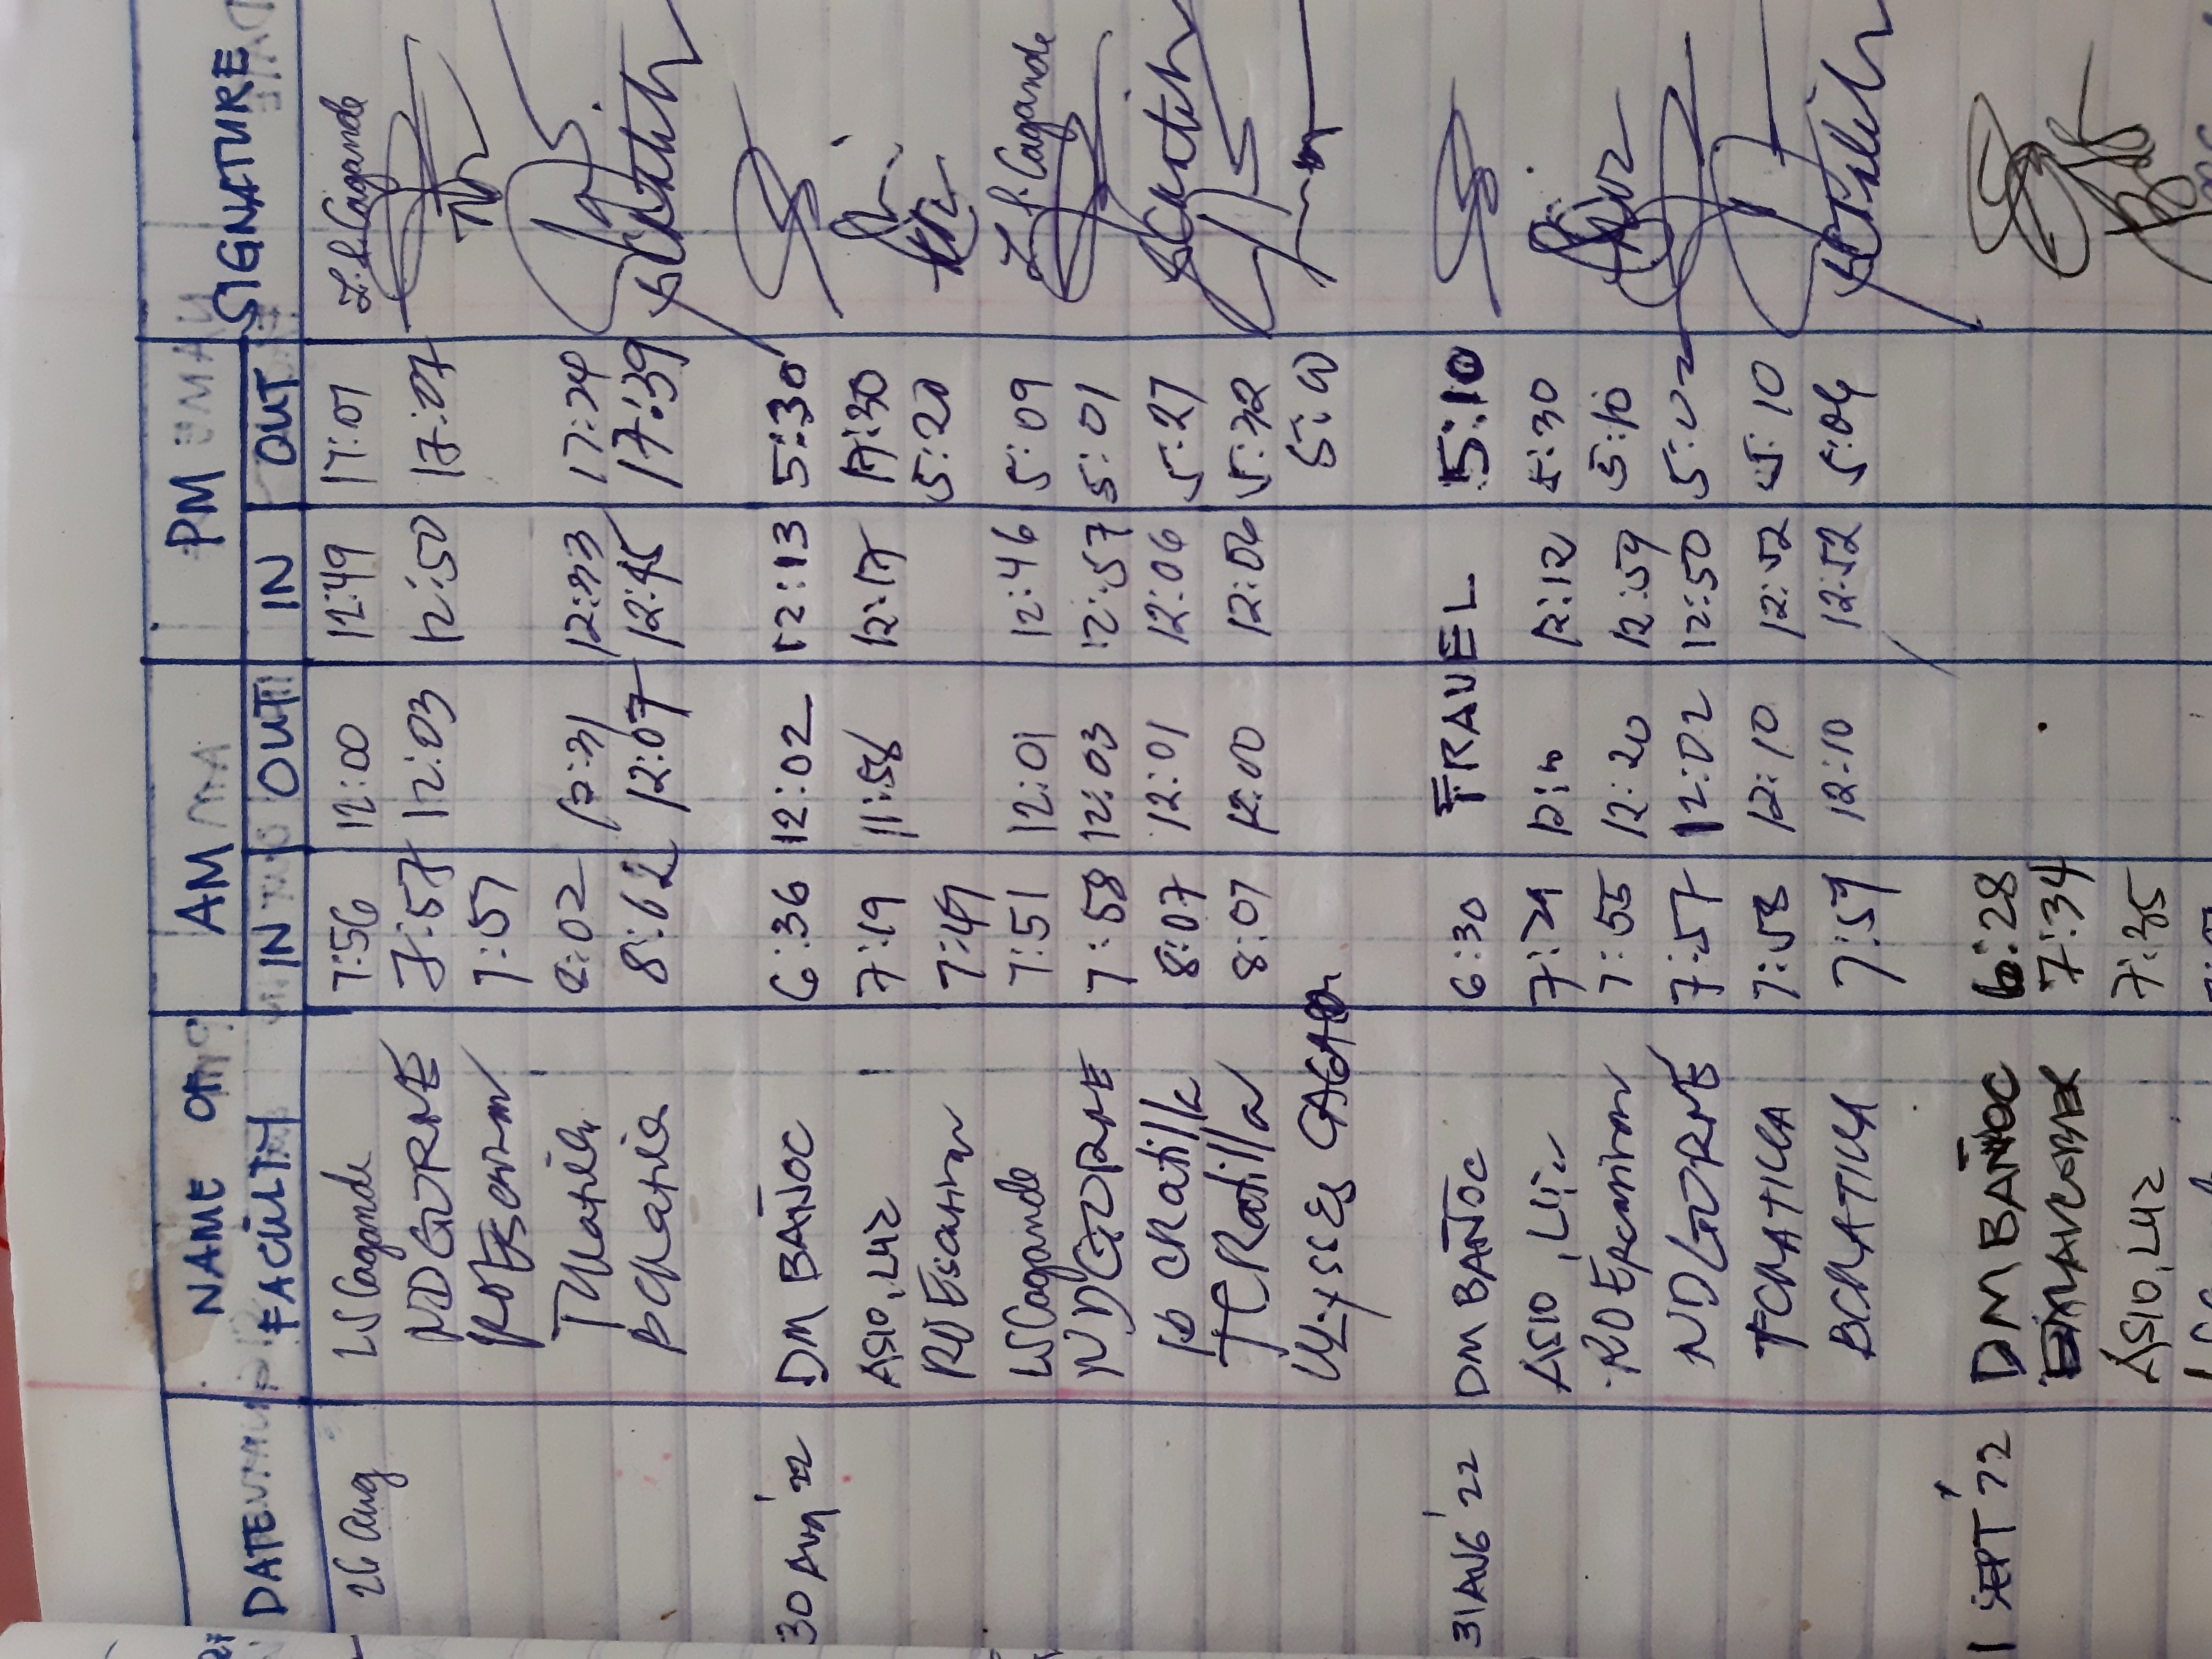 DATE NAME OF FACULTY AM PM SIGNATURE
IN OUT IN OUT
26 Aug LSCagande 7:56 12:00 12:49 17:01 L.S.Cagande
NDGURNE 7:57 12:03 12:50 17:07
7:57
8:02 12:31 12:33 17:24
8:02 12:07 12:45 17:39
30 Aug '22 DM BAÑOC 6:36 12:02 12:13 5:30
ASIO, LUZ 7:19 11:58 12:17 17:30
RD Escarman 7:47 5:20
LSCagande 7:51 12:01 12:46 5:09 L.S.Cagande
NDGURNE 7:58 12:03 12:57 5:01
CRatilla 8:07 12:01 12:06 5:27
TCRatilla 8:07 12:00 12:06 5:32
ULYSSES 5:00
31 AUG '22 DM BAÑOC 6:30 TRAVEL 5:10
ASIO, Liz 7:29 12:12 5:30
RD 7:55 12:20 12:59 5:10
NDGURNE 7:57 12:02 12:50 5:02
TCRATILLA 7:58 12:10 12:52 5:10
BCRATILLA 7:59 12:10 12:52 5:04
1 SEPT '22 DM BAÑOC 6:28
7:34
ASIO, LUZ 7:35